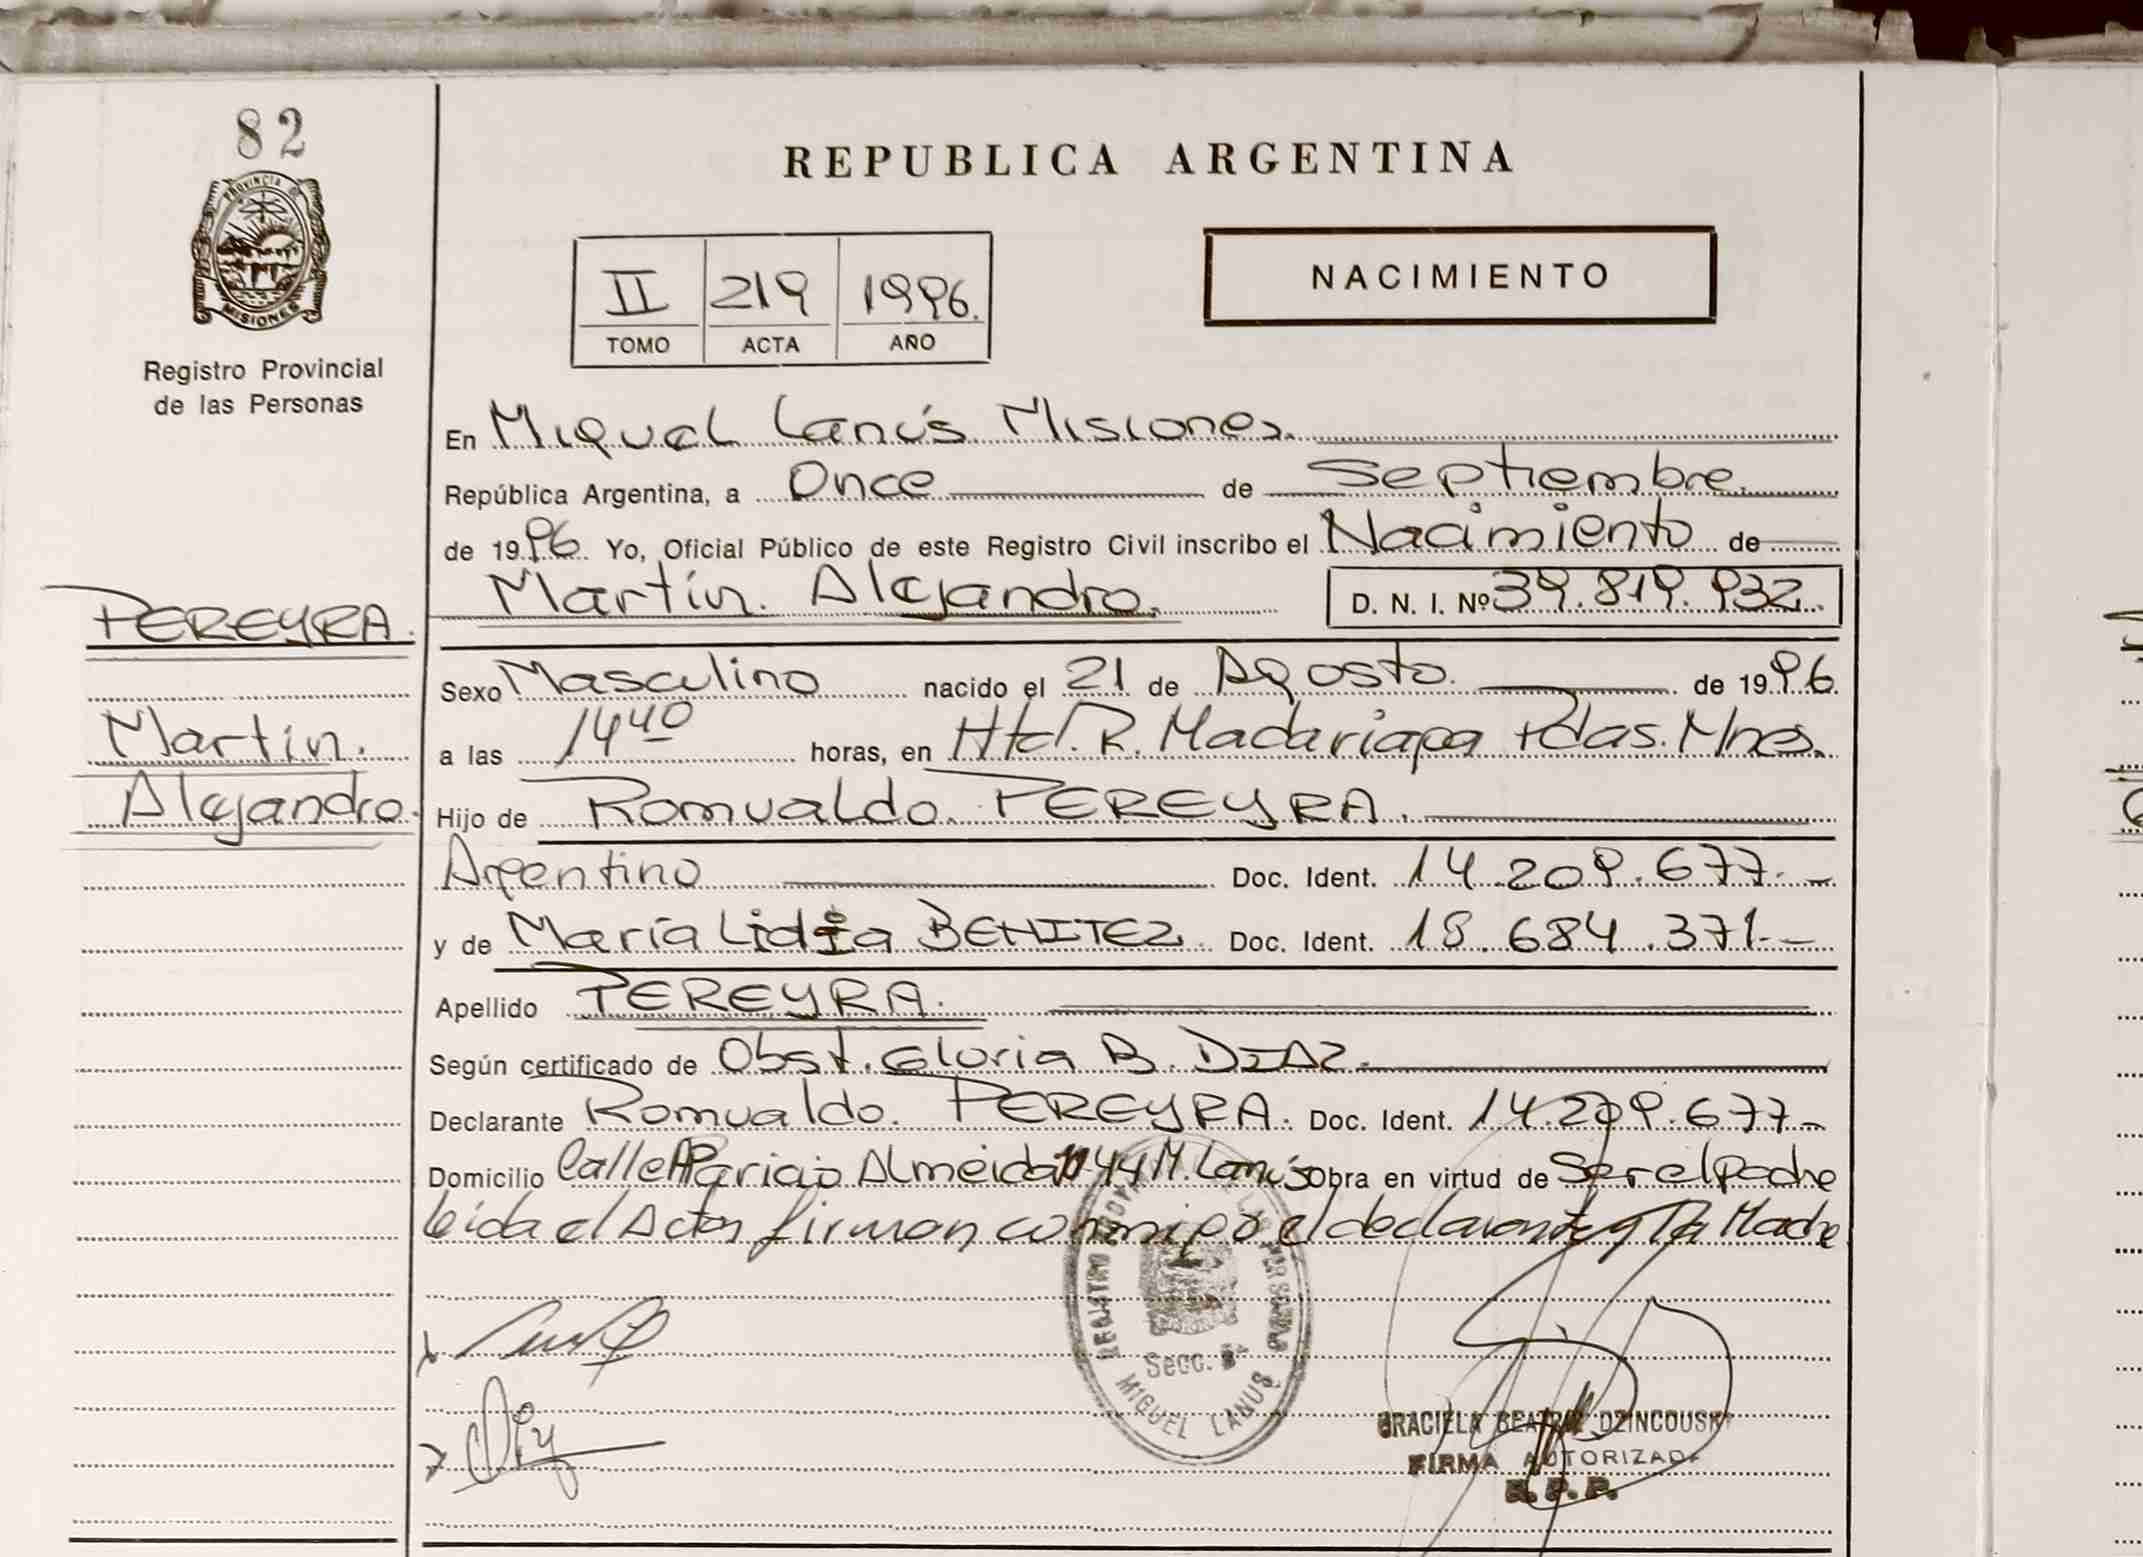 82
PROVINCIA DE
MISIONES
Registro Provincial
de las Personas
REPUBLICA ARGENTINA
II 219 1996.
TOMO ACTA AÑO
NACIMIENTO
En Miguel Lanús Misiones.
República Argentina, a Once de Septiembre.
de 1996. Yo, Oficial Público de este Registro Civil inscribo el Nacimiento de
Martín. Alejandro.
D. N. I. Nº 39.819.932.
PEREYRA.
Martín.
Alejandro.
Sexo Masculino nacido el 21 de Agosto. de 1996.
a las 14 40 horas, en Htal. R. Madariaga Pdas. Mnes.
Hijo de Romualdo. PEREYRA.
Argentino Doc. Ident. 14.209.677.-
y de María Lidia BENITEZ. Doc. Ident. 18.684.371.-
Apellido PEREYRA.
Según certificado de Obst. Gloria B. DIAZ.
Declarante Romualdo. PEREYRA. Doc. Ident. 14.209.677-
Domicilio Calle Aparicio Almeida 44 M. Lanús obra en virtud de Ser el padre
leida el Acta firman conmigo el declarante y la Madre
REGISTRO PROVINCIAL DE LAS PERSONAS
Secc.
MIGUEL LANUS
GRACIELA BEATRIZ DZINCOUSKI
FIRMA AUTORIZADA
R.P.P.